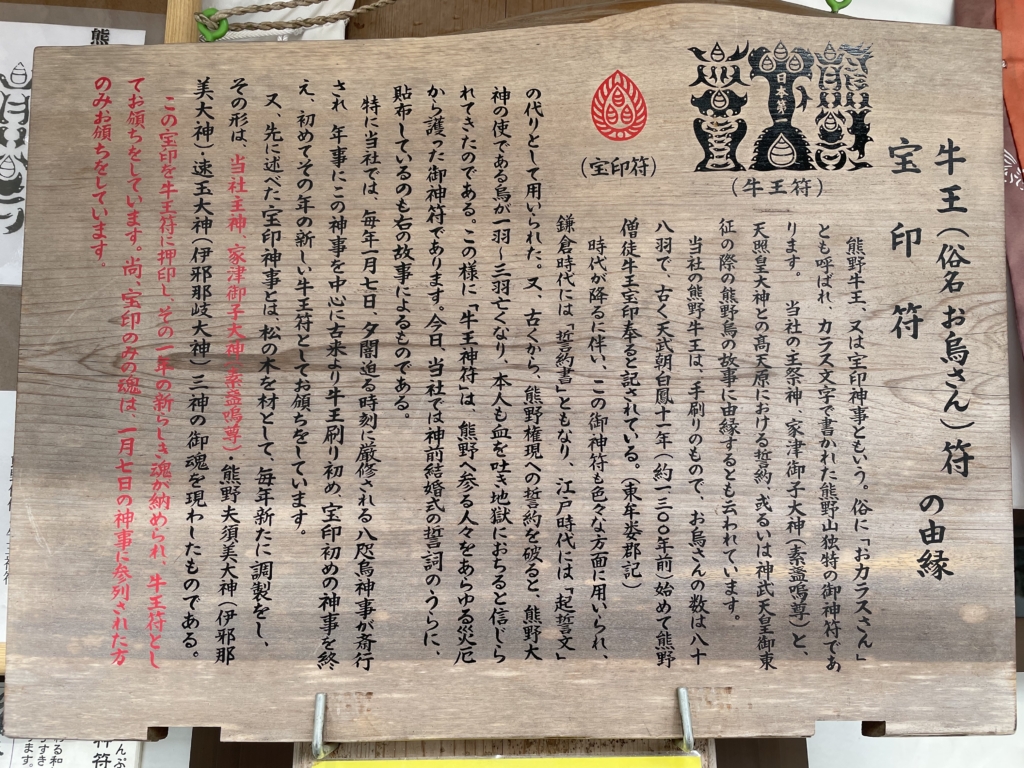 牛王（俗名 お烏さん）符
宝印符
の由縁
（牛王符）
日本第一
（宝印符）
熊野牛王、又は宝印神事ともいう。俗に「おカラスさん」
とも呼ばれ、カラス文字で書かれた熊野山独特の御神符であ
ります。　当社の主祭神、家津御子大神（素盞嗚尊）と、
天照皇大神との髙天原における誓約、或るいは神武天皇御東
征の際の熊野烏の故事に由縁するとも云われています。
当社の熊野牛王は、手刷りのもので、お烏さんの数は八十
八羽で、古く天武朝白鳳十一年（約一三〇〇年前）始めて熊野
僧徒牛王宝印奉ると記されている。（東牟婁郡記）
時代が降るに伴い、この御神符も色々な方面に用いられ、
鎌倉時代には「誓約書」ともなり、江戸時代には「起誓文」
の代りとして用いられた。又、古くから、熊野権現への誓約を破ると、熊野大
神の使である烏が一羽～三羽亡くなり、本人も血を吐き地獄におちると信じら
れてきたのである。この様に「牛王神符」は、熊野へ参る人々をあらゆる災厄
から護った御神符であります。今日、当社では神前結婚式の誓詞のうらに、
貼布しているのも右の故事によるものである。
特に当社では、毎年一月七日、夕闇迫る時刻に厳修される八咫烏神事が斎行
され　年事にこの神事を中心に古来より牛王刷り初め、宝印初めの神事を終
え、初めてその年の新しい牛王符としてお頒ちをしています。
又、先に述べた宝印神事とは、松の木を材として、毎年新たに調製をし、
その形は、当社主神、家津御子大神（素盞嗚尊）、熊野夫須美大神（伊邪那
美大神）速玉大神（伊邪那岐大神）三神の御魂を現わしたものである。
この宝印を牛王符に押印し、その一年の新らしき魂が納められ、牛王符とし
てお頒ちをしています。尚、宝印のみの魂は、一月七日の神事に参列された方
のみお頒ちをしています。
熊